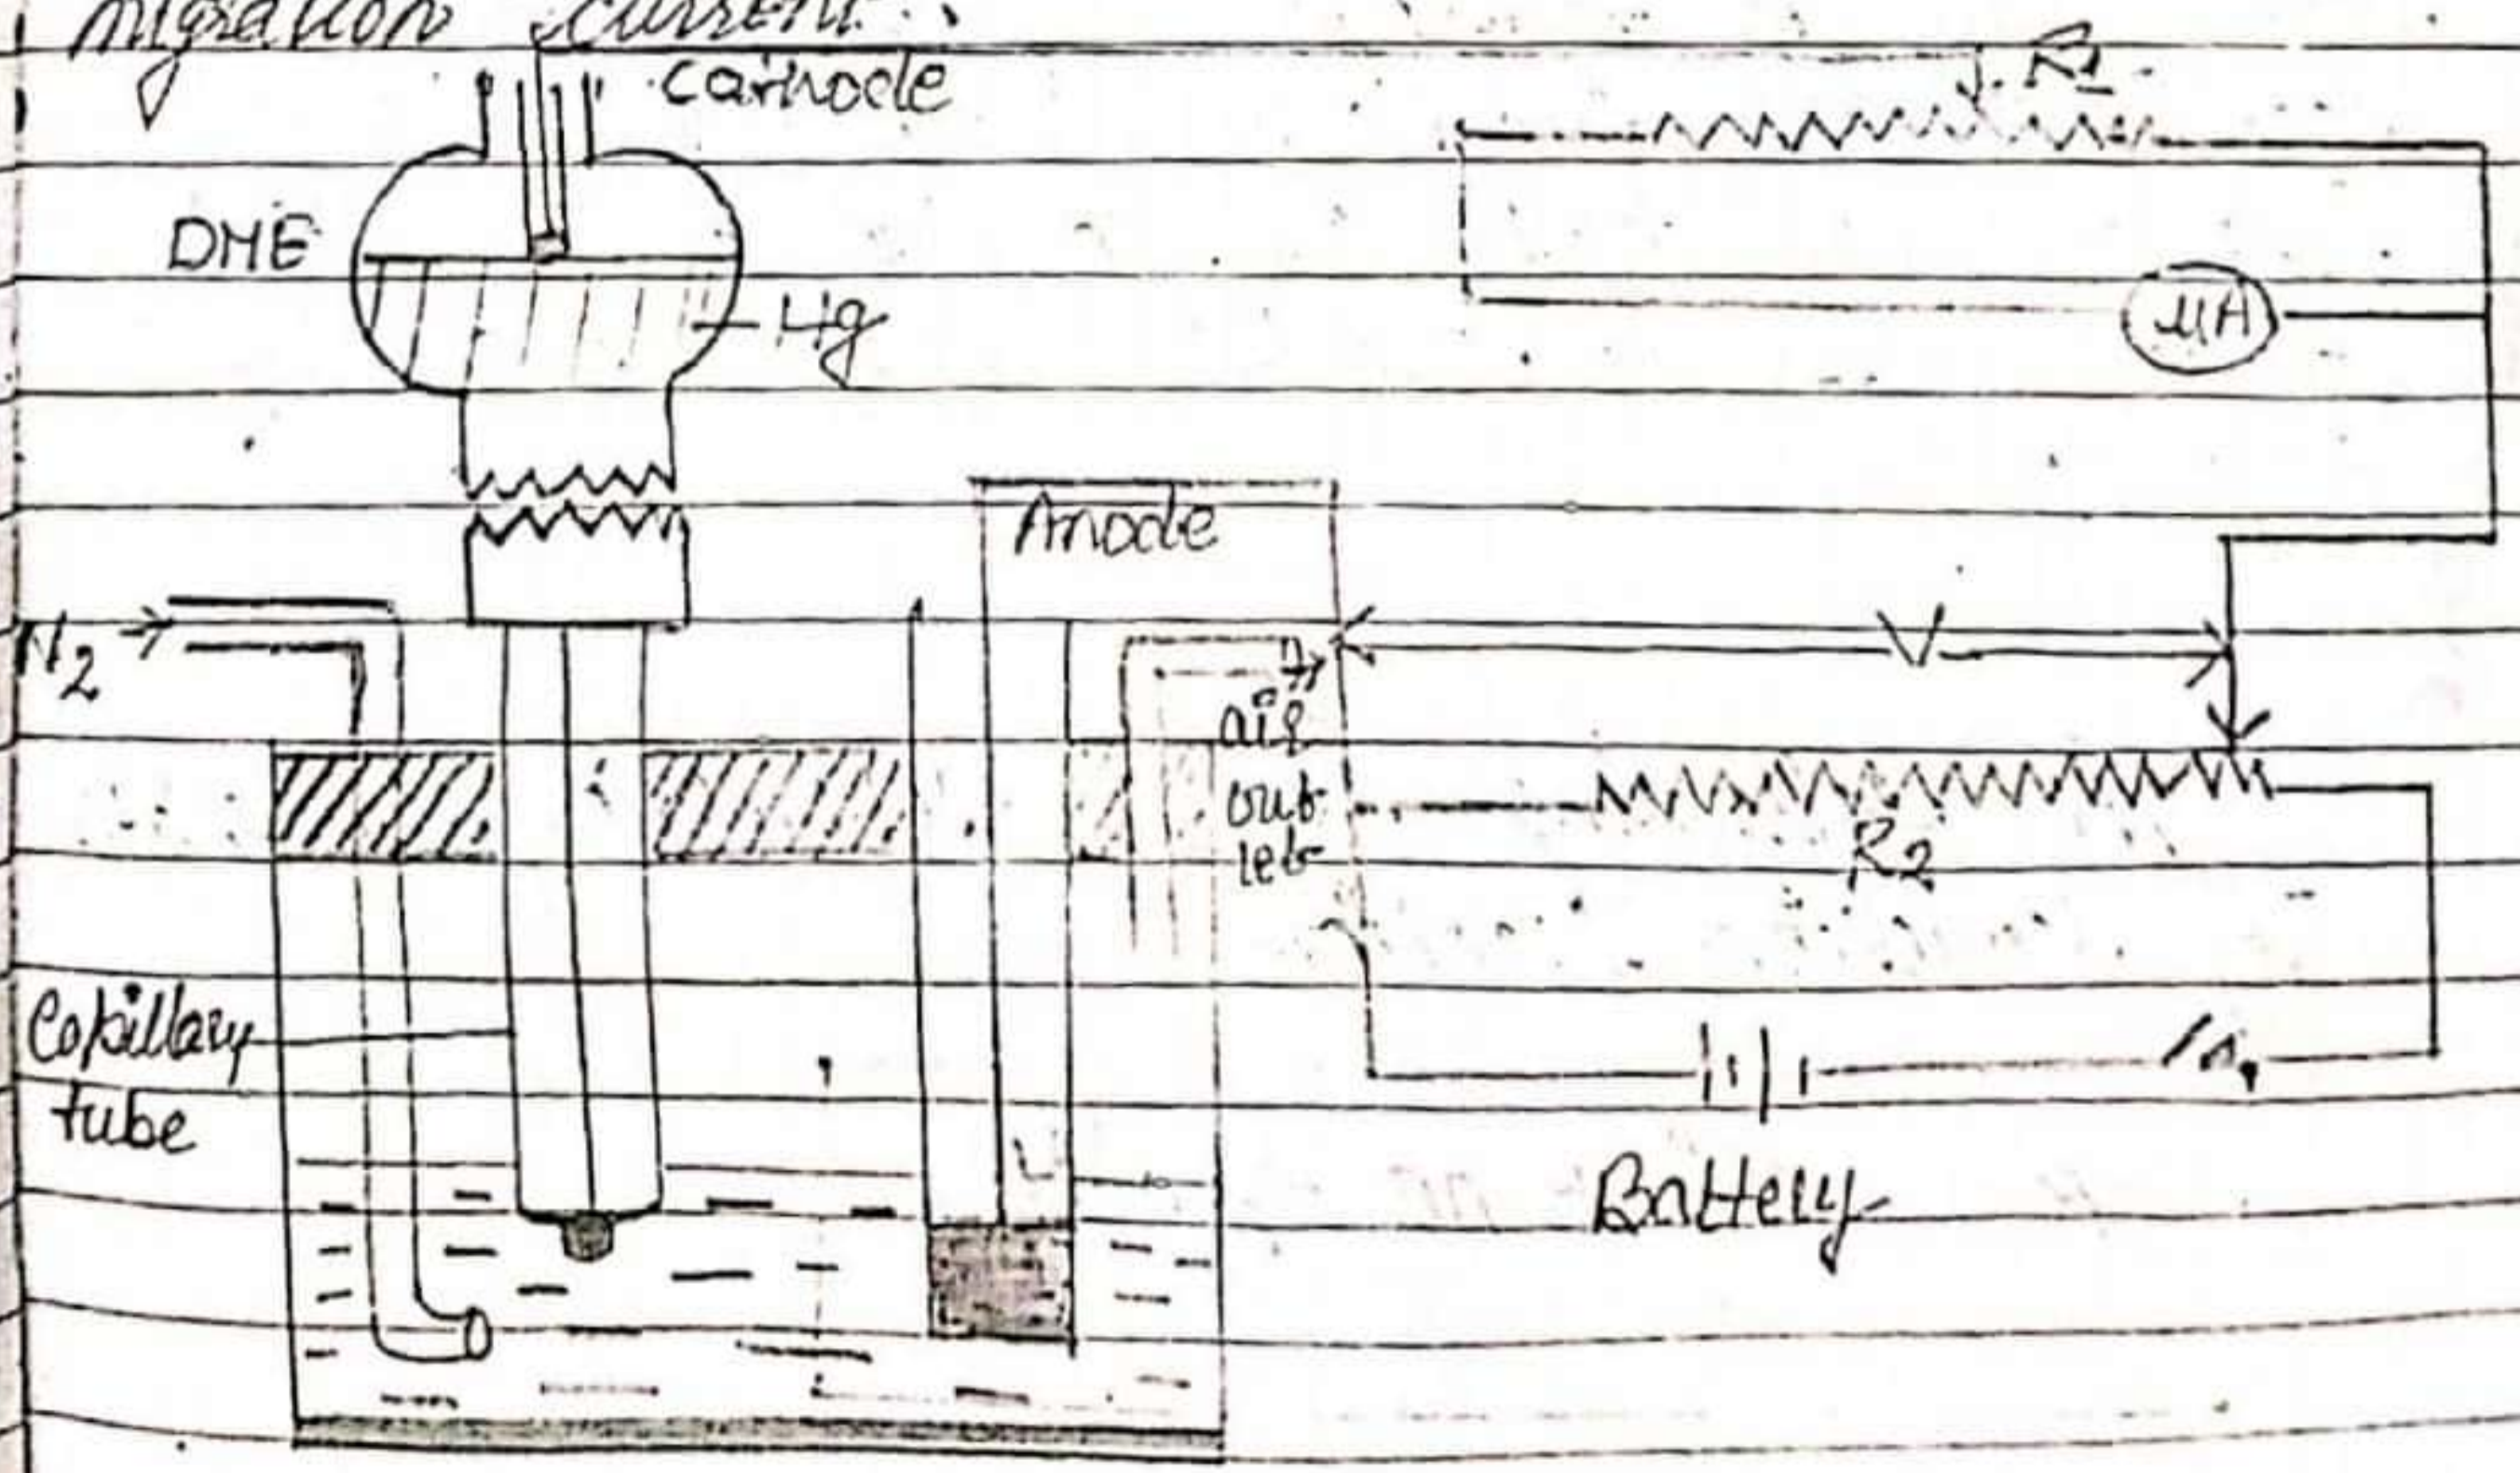 migration current.
cathode
R1
DME
Hg
μA
Anode
N2
V
air
out
let
R2
Capillary
tube
Battery